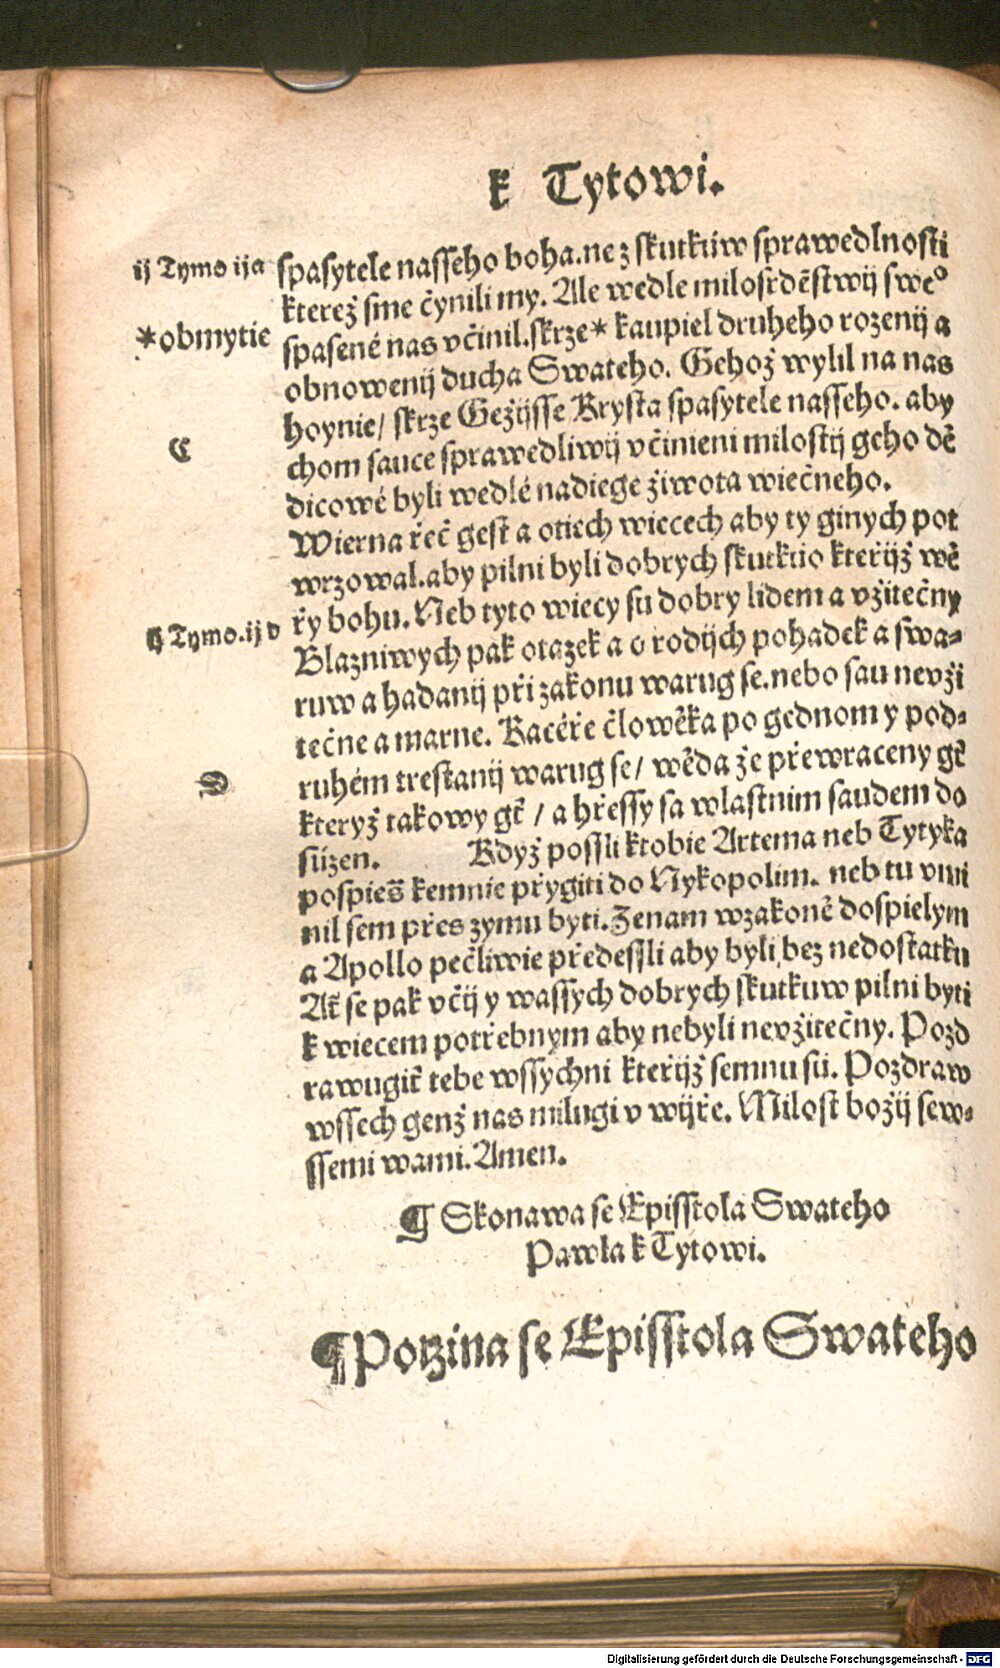 k Tytowi.
ij Tymo ija
spasytele nasseho boha. ne z skutkúw sprawedlnosti
kterež sme čynili my. Ale wedle milosrdēstwij sweº
*obmytie
spasené nas včinil. skrze* kaupiel druheho rozenij a
obnowenij ducha Swateho. Gehož wylil na nas
hoynie/ skrze Gežijsse Krysta spasytele nasseho. aby
C
chom sauce sprawedliwij včinieni milostij geho dě
dicowé byli wedlé nadiege žiwota wiečneho.
Wierna řeč gest a otiech wiecech aby ty ginych pot
wrzowal. aby pilni byli dobrych skutkuo kteřijž wě
řy bohu. Neb tyto wiecy su dobry lidem a vžitečny
ij Tymo. ij d
Blazniwych pak otazek a o rodijch pohadek a swa-
ruw a hadanij při zakonu warug se. nebo sau nevži
tečne a marne. Kacéře člowěka po gednom y pod-
ruhém trestanij warug se/ wěda že přewraceny gē
D
kteryž takowy gt̄ / a hřessy sa wlastnim saudem do
súzen. Když possli ktobie Artema neb Tytyka
pospieš kemnie přygiti do Nykopolim. neb tu vmi
nil sem přes zymu byti. Zenam wzakoně dospielym
a Apollo pečliwie předessli aby byli bez nedostatku
At̄ se pak včij y wassych dobrych skutkuw pilni byti
k wiecem potřebnym aby nebyli nevžitečny. Pozd
rawugit̄ tebe wssychni kteřijž semnu sú. Pozdraw
wssech genž nas milugi v wijře. Milost božij sew-
ssemi wami. Amen.
¶ Skonawa se Episstola Swateho
Pawla k Tytowi.
¶ Potzina se Episstola Swateho
Digitalisierung gefördert durch die Deutsche Forschungsgemeinschaft - DFG